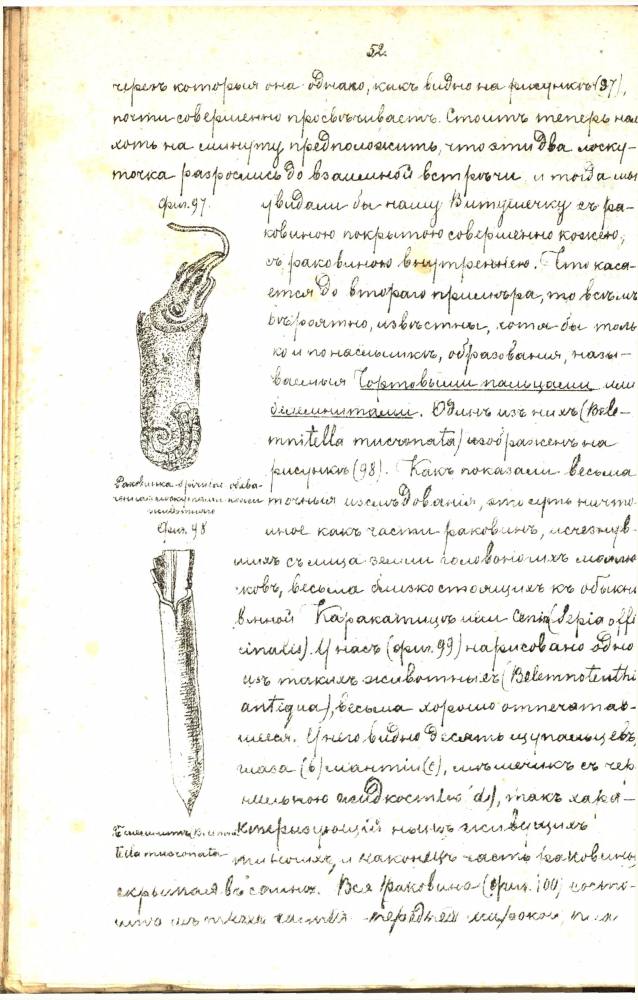 52.
черезъ которыя она однако, какъ видно на рисункѣ (97),
почти совершенно просвѣчиваетъ. Стоитъ теперь нам
хоть на минуту предположить, что эти два лоску-
точка разрослись до взаимной встрѣчи и тогда мы
Фиг. 97.
увидали бы нашу Витушечку съ ра-
ковиною покрытою совершенно кожею,
съ раковиною внутреннею. Что каса-
ется до втораго примѣра, то всѣмъ
вѣроятно, извѣстны, хотя бы толь
ко и по наслышкѣ, образованія, назы-
ваемыя Чортовыми пальцами или
белемнитами. Одинъ изъ нихъ (Bele-
mnitella mucronata) изображенъ на
рисункѣ (98). Какъ показали весьма
точныя изслѣдованія, это суть ничто
иное какъ части раковинъ, исчезнув-
шихъ съ лица земли головоногихъ моллю
сковъ, весьма близко стоящихъ къ обыкн
венной Каракатицѣ или (Sepia offi
cinalis). У насъ (фиг. 99) нарисовано одно
изъ такихъ животныхъ (Belemnoteuthi
antiqua), весьма хорошо отпечатав-
шееся. У него видно десять щупальцевъ,
глаза (b) мантіи (c), мѣшечикъ съ чер
нильною жидкостью (d), такъ харак-
Раковинка
животнаго
Фиг. 98
теризующій нынѣ живущихъ
и наконецъ часть раковины
Белемнитъ
tella mucronata
скрытая въ спинѣ. Вся раковина (фиг. 100) состо-
передней широкой,